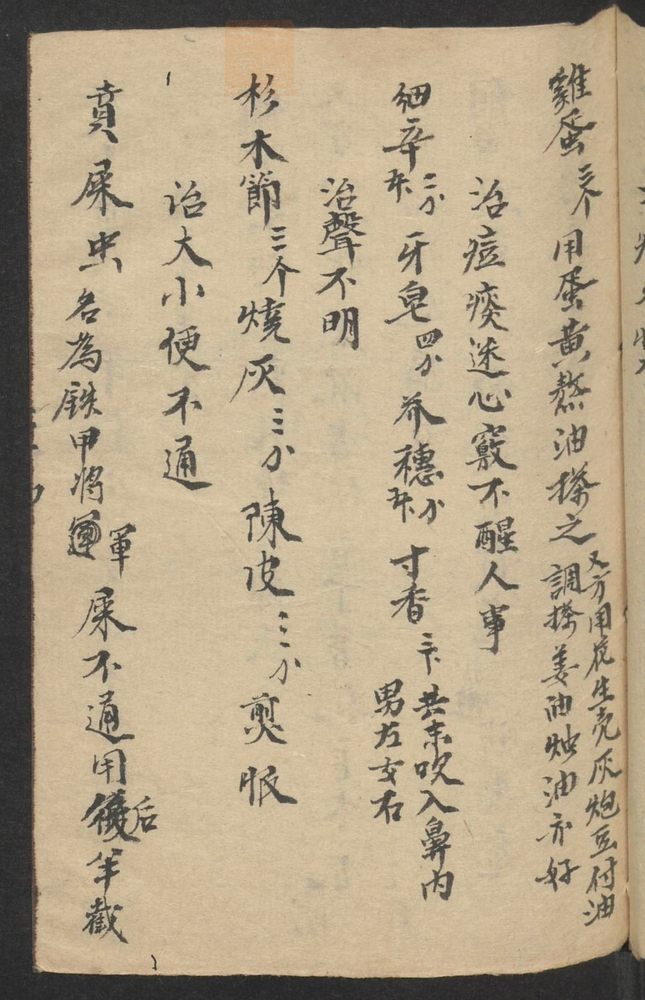 雞蛋三个用蛋黄熬油搽之
又方用花生壳灰炮豆付油
調搽姜油燭油亦好
治痘瘼迷心竅不醒人事
细辛二分 牙皂四分 芥穗分 寸香三下 共末吹入鼻内
男左女右
治聲不明
杉木節三个燒灰三分陳皮三分煎服
治大小便不通
賁屎虫名為鉄甲将軍屎不通用後半截
后